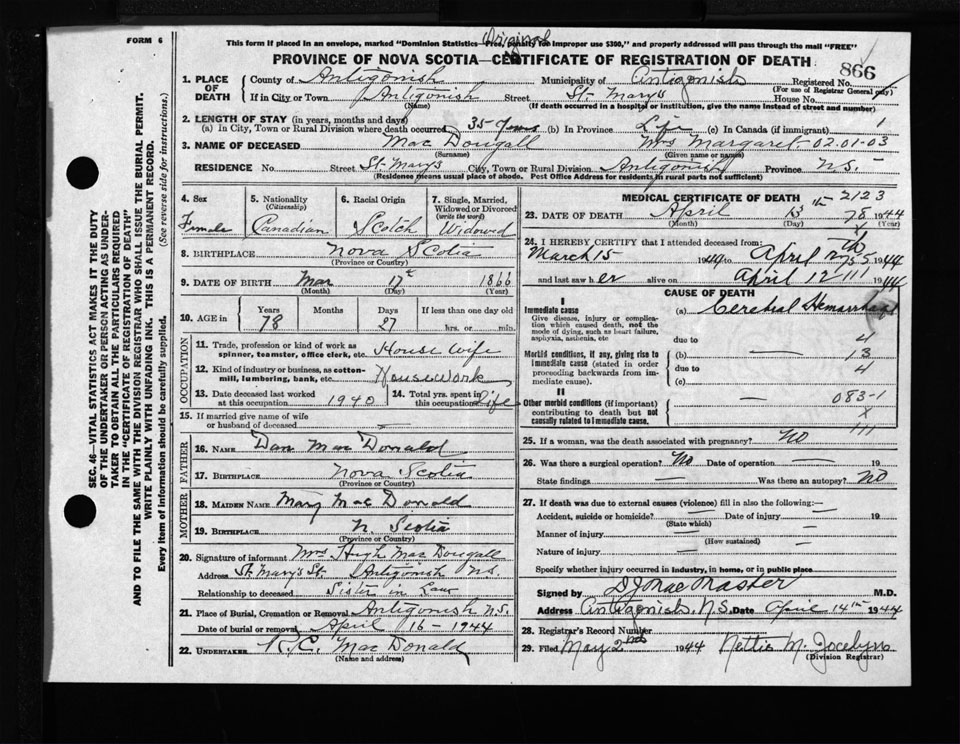 FORM 6
Original
This form if placed in an envelope, marked "Dominion Statistics—Free, penalty for improper use $300," and properly addressed will pass through the mail "FREE"
PROVINCE OF NOVA SCOTIA—CERTIFICATE OF REGISTRATION OF DEATH
866
1. PLACE OF DEATH County of Antigonish Municipality of Antigonish Registered No.
(For use of Registrar General only)
If in City or Town Antigonish Street St. Marys House No.
(Name) (If death occurred in a hospital or institution, give the name instead of street and number)
2. LENGTH OF STAY (in years, months and days)
(a) In City, Town or Rural Division where death occurred 35 years (b) In Province Life (c) In Canada (if immigrant) 1
3. NAME OF DECEASED Mac Dougall Mrs Margaret-02.01-03
(Surname) (Given name or names)
RESIDENCE No. Street St-Marys City, Town or Rural Division Antigonish Province N.S.
(Residence means usual place of abode. Post Office Address for residents in rural parts not sufficient)
4. Sex Female
5. Nationality (Citizenship) Canadian
6. Racial Origin Scotch
7. Single, Married, Widowed or Divorced (write the word) Widowed
8. BIRTHPLACE Nova Scotia
(Province or Country)
9. DATE OF BIRTH Mar 17th 1866
(Month) (Day) (Year)
10. AGE in Years 78 Months Days 27 If less than one day old hrs. or min.
OCCUPATION
11. Trade, profession or kind of work as spinner, teamster, office clerk, etc. House wife
12. Kind of industry or business, as cotton-mill, lumbering, bank, etc. Housework
13. Date deceased last worked at this occupation 1940 14. Total yrs. spent in this occupation life
15. If married give name of wife or husband of deceased —
FATHER
16. NAME Dan Mac Donald
17. BIRTHPLACE Nova Scotia
(Province or Country)
MOTHER
18. MAIDEN NAME Mary Mac Donald
19. BIRTHPLACE N. Scotia
(Province or Country)
20. Signature of informant Mrs Hugh Mac Dougall
Address St. Mary's St. Antigonish N.S.
Relationship to deceased Sister in Law
21. Place of Burial, Cremation or Removal Antigonish N.S.
Date of burial or removal April 16 - 1944
22. UNDERTAKER R.C. Mac Donald
(Name and address)
MEDICAL CERTIFICATE OF DEATH 2123
23. DATE OF DEATH April 13th 78 1944
(Month) (Day) (Year)
24. I HEREBY CERTIFY that I attended deceased from:
March 15 1944 to April 12th 1944
and last saw her alive on April 12 111 1944
CAUSE OF DEATH
I
Immediate cause (a) Cerebral Hemorrhage
Give disease, injury or complication which caused death, not the mode of dying, such as heart failure, asphyxia, asthenia, etc
due to 4
Morbid conditions, if any, giving rise to immediate cause (stated in order proceeding backwards from immediate cause).
(b) — 13
due to 4
(c)
II
Other morbid conditions (if important) contributing to death but not causally related to immediate cause. — 083-1
X
111
25. If a woman, was the death associated with pregnancy? No
26. Was there a surgical operation? No Date of operation — 19
State findings — Was there an autopsy? No
27. If death was due to external causes (violence) fill in also the following:—
Accident, suicide or homicide? — Date of injury — 19
(State which)
Manner of injury —
(How sustained)
Nature of injury —
Specify whether injury occurred in industry, in home, or in public place
Signed by M.D.
Address Antigonish, N.S. Date April 14th 1944
28. Registrar's Record Number
29. Filed May 2nd 1944 Nettie M. Jocelyn
(Division Registrar)
SEC. 46—VITAL STATISTICS ACT MAKES IT THE DUTY
OF THE UNDERTAKER OR PERSON ACTING AS UNDER-
TAKER TO OBTAIN ALL THE PARTICULARS REQUIRED
IN THE "CERTIFICATE OF REGISTRATION OF DEATH"
AND TO FILE THE SAME WITH THE DIVISION REGISTRAR WHO SHALL ISSUE THE BURIAL PERMIT.
WRITE PLAINLY WITH UNFADING INK. THIS IS A PERMANENT RECORD.
Every item of information should be carefully supplied. (See reverse side for instructions.)